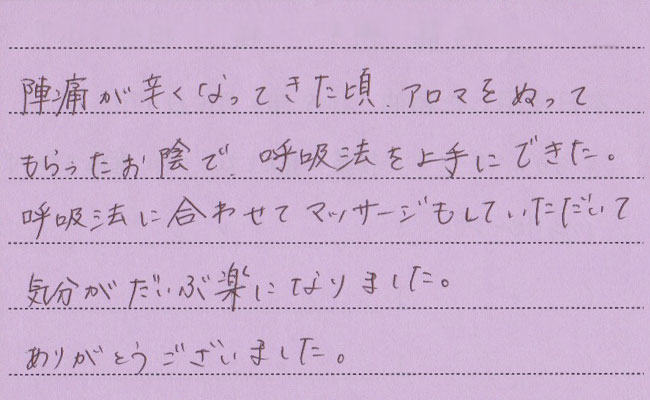 陣痛が辛くなってきた頃、アロマをぬって
もらぅたお陰で、呼吸法を上手にできた。
呼吸法に合わせてマッサージもしていただいて
気分がだいぶ楽になりました。
ありがとうございました。